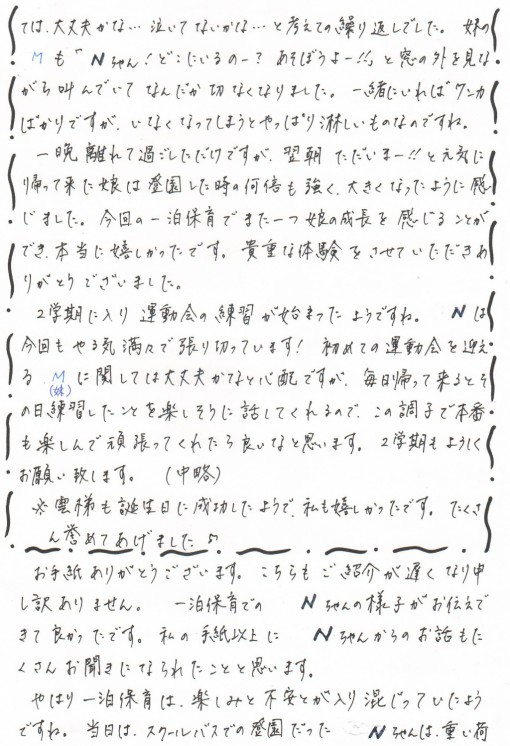 ては、大丈夫かな…泣いてないかな…と考えての繰り返しでした。妹の
Mも「Nちゃん！どこにいるのー？あそぼうよー!!」と窓の外を見な
がら叫んでいてなんだか切なくなりました。一緒にいればケンカ
ばかりですが、いなくなってしまうとやっぱり淋しいものなのですね。
一晩離れて過ごしただけですが、翌朝ただいまー!!と元気に
帰って来た娘は登園した時の何倍も強く、大きくなったように感
じました。今回の一泊保育でまた一つ娘の成長を感じることが
でき、本当に嬉しかったです。貴重な体験をさせていただきあ
りがとうございました。
2学期に入り運動会の練習が始まったようですね。Nは
今回もやる気満々で張り切っています！初めての運動会を迎え
るMに関しては大丈夫かなと心配ですが、毎日帰って来るとそ
(妹)
の日練習したことを楽しそうに話してくれるので、この調子で本番
も楽しんで頑張ってくれたら良いなと思います。2学期もよろしく
お願い致します。（中略）
※雲梯も誕生日に成功したようで、私も嬉しかったです。たくさ
ん誉めてあげました♪
お手紙ありがとうございます。こちらもご紹介が遅くなり申
し訳ありません。一泊保育でのNちゃんの様子がお伝えで
きて良かったです。私の手紙以上にNちゃんからのお話もた
くさんお聞きになられたことと思います。
やはり一泊保育は、楽しみと不安とが入り混じっていたよう
ですね。当日は、スクールバスでの登園だったNちゃんは、重い荷